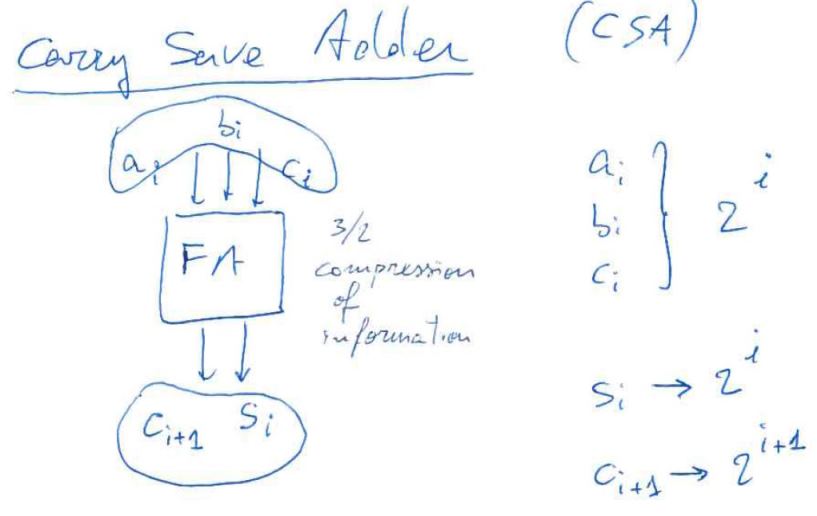 Carry Save Adder (CSA)
bᵢ
aᵢ cᵢ
FA
3/2
compression
of
information
cᵢ₊₁ sᵢ
aᵢ
bᵢ } 2ⁱ
cᵢ
sᵢ → 2ⁱ
cᵢ₊₁ → 2ⁱ⁺¹